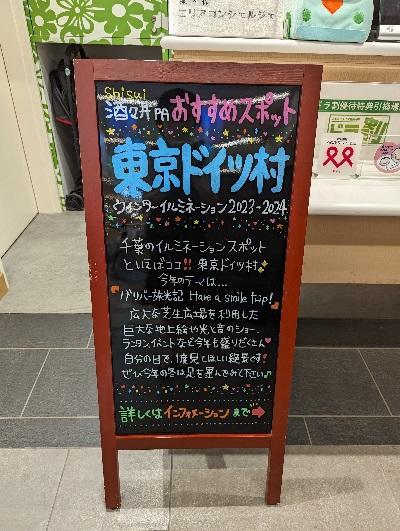 エリアコンシェルジェ
ドラ割優待特典引換場
Shisui
酒々井PAおすすめスポット
東京ドイツ村
ウィンターイルミネーション2023-2024
千葉のイルミネーションスポット
といえばココ!!東京ドイツ村
今年のテーマは...
「パリパー旅光記 Have a smile trip!
広大な芝生広場を利用した
巨大な地上絵や光と音のショー、
ランタンイベントなど今年も盛りだくさん
自分の目で1度見てほしい絶景です!
ぜひ今年の冬は足を運んでみて下さい♪
詳しくはインフォメーションまで→